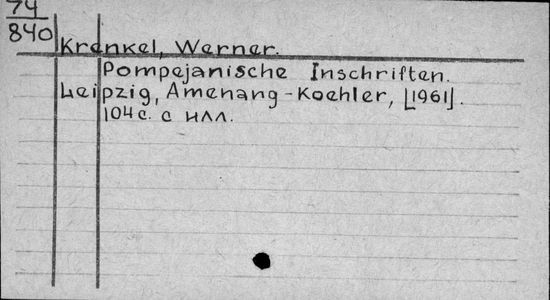 74
840
Krenkel, Werner.
Pompejanische Inschriften.
Leipzig, Amenang-Koehler, [1961].
104 с. с илл.